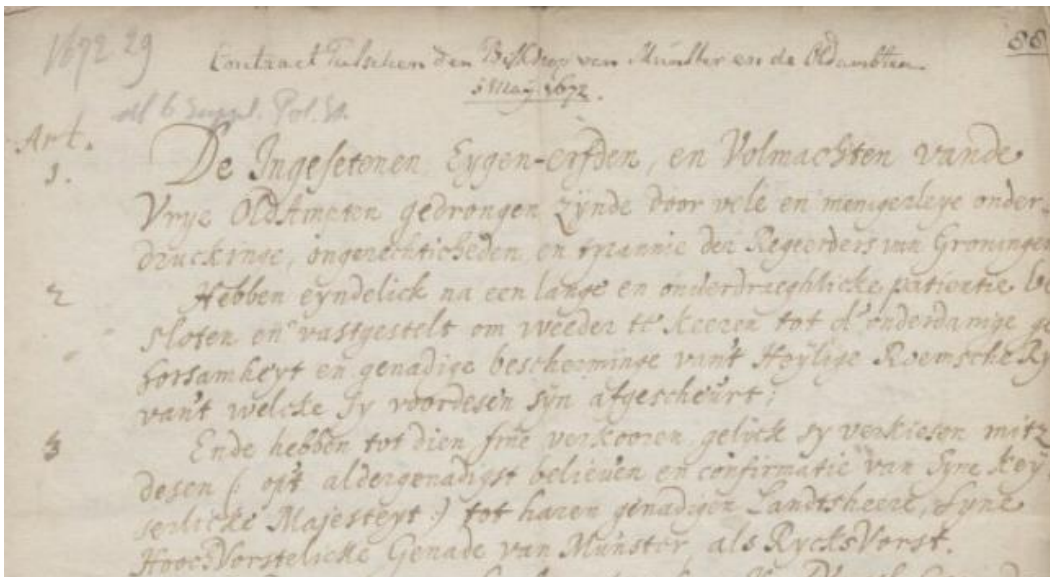 1672 29
88
Contract Tusschen den Bisschop van Munster en de Oldambten
5 May 1672.
Art.
1.
De Ingesetenen Eygen-erfden, en Volmachten vande
Vrije OldAmpten gedrongen zynde door vele en menigerleye onder-
druckinge, ongerechticheden, en tyrannie der Regeerders van Groningen
2
Hebben eyndelick na een lange en onderdraeghlicke patientie be
sloten en vastgestelt om weeder te keeren tot d'onderdanige ge
horsamheyt en genadige bescherminge van't Heylige Roemsche Ry
van't welcke sy voordesen syn afgescheurt;
3
Ende hebben tot dien fine verkooren, gelyck sy verkiesen mitz
desen (: op't aldergenadigst belieuen en confirmatie van Syne Key
serlicke Majesteyt :) tot haren genadigen Landtsheere, Syne
Hooch Vorstelicke Genade van Munster, als RycksVorst.